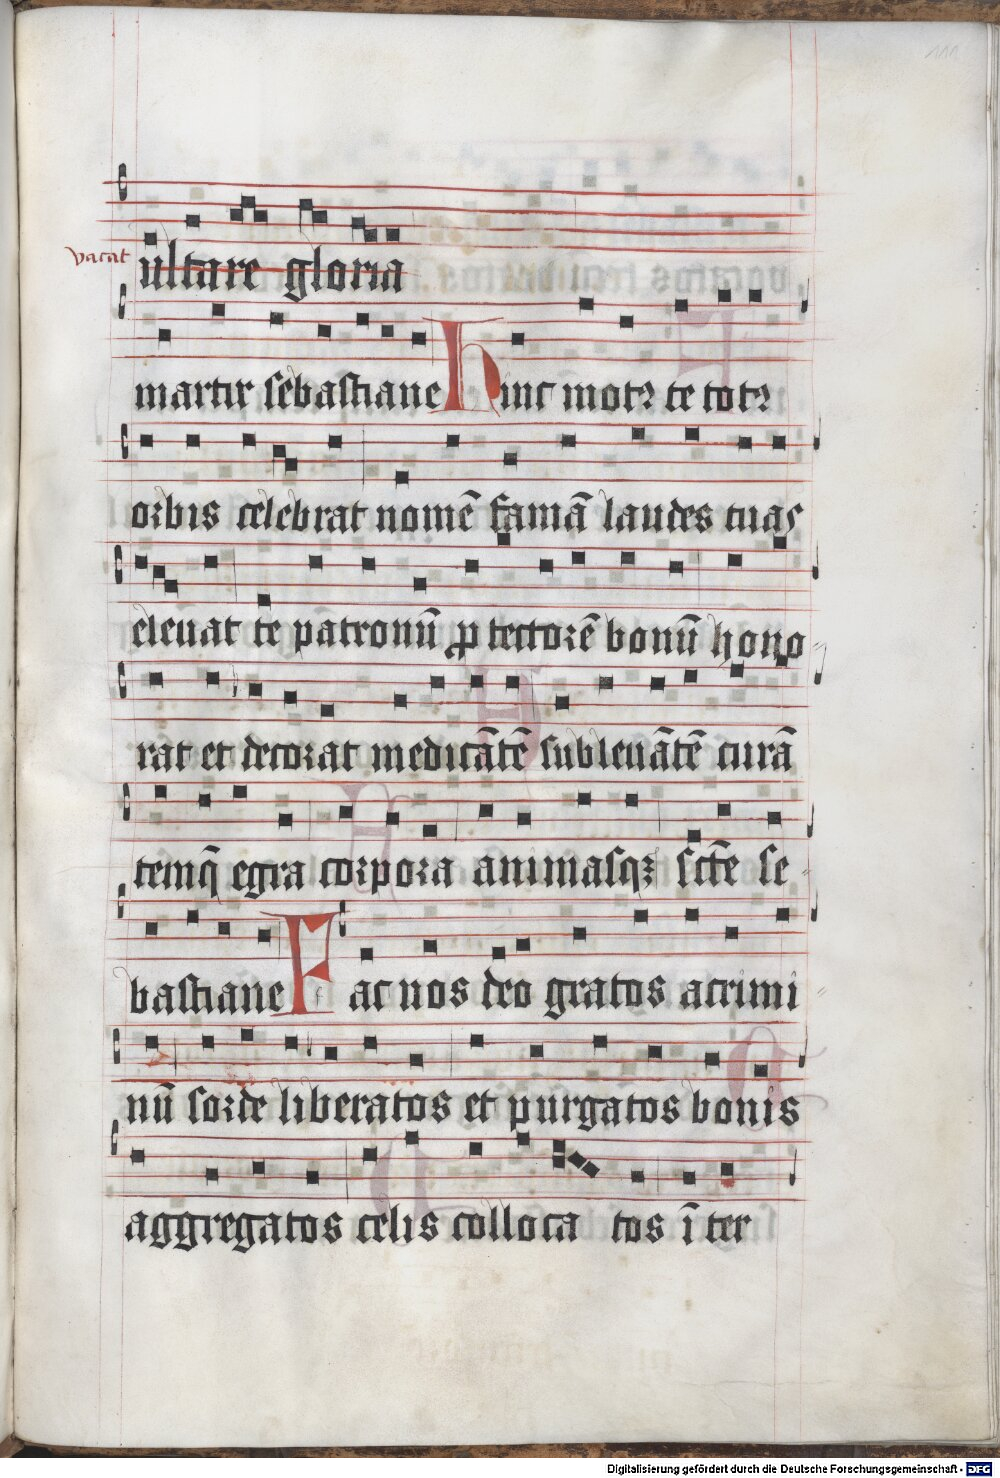 111
vacat
ultare gloria
martir sebastiane Hinc motꝰ te totꝰ
orbis celebrat nomē famā laudes tuas
eleuat te patronū ꝓtectorē bonū hono
rat et decorat medicātē subleuātē curā
temq̄ egra corpora animasqꝫ scte se
bastiane Fac nos deo gratos acrimi
nū sorde liberatos et purgatos bonis
aggregatos celis colloca tos īter
Digitalisierung gefördert durch die Deutsche Forschungsgemeinschaft - DFG